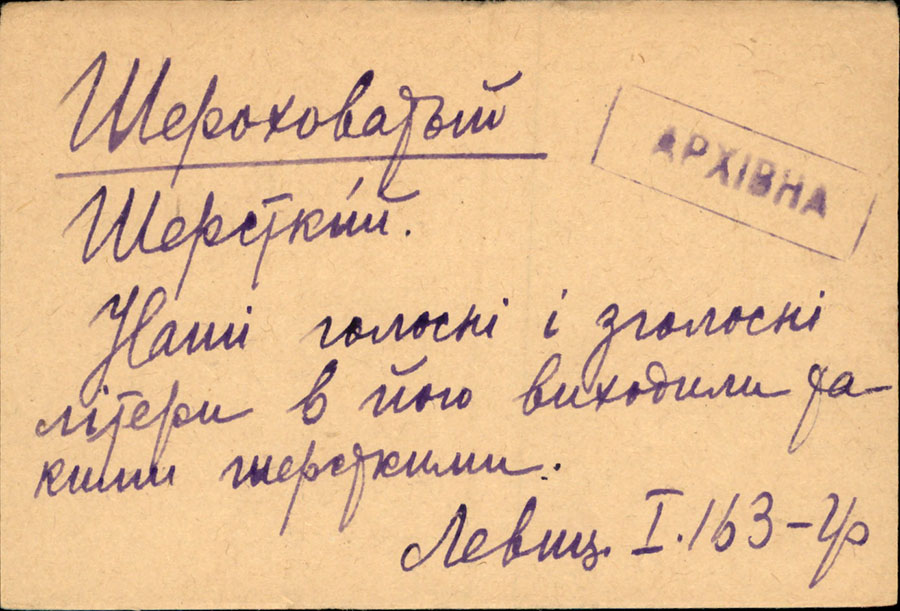 Шероховатый
АРХІВНА
Шерсткі́й.
Наші голосні і зголосні
літери в його виходили та-
кими шерсткими.
Левиц. I. 163 - Гр